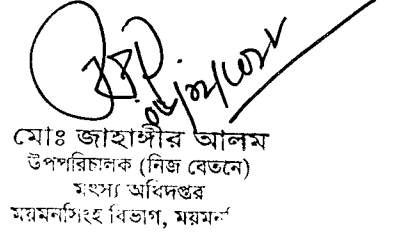 মোঃ জাহাঙ্গীর আলম
উপপরিচালক (নিজ বেতনে)
মৎস্য অধিদপ্তর
ময়মনসিংহ বিভাগ,